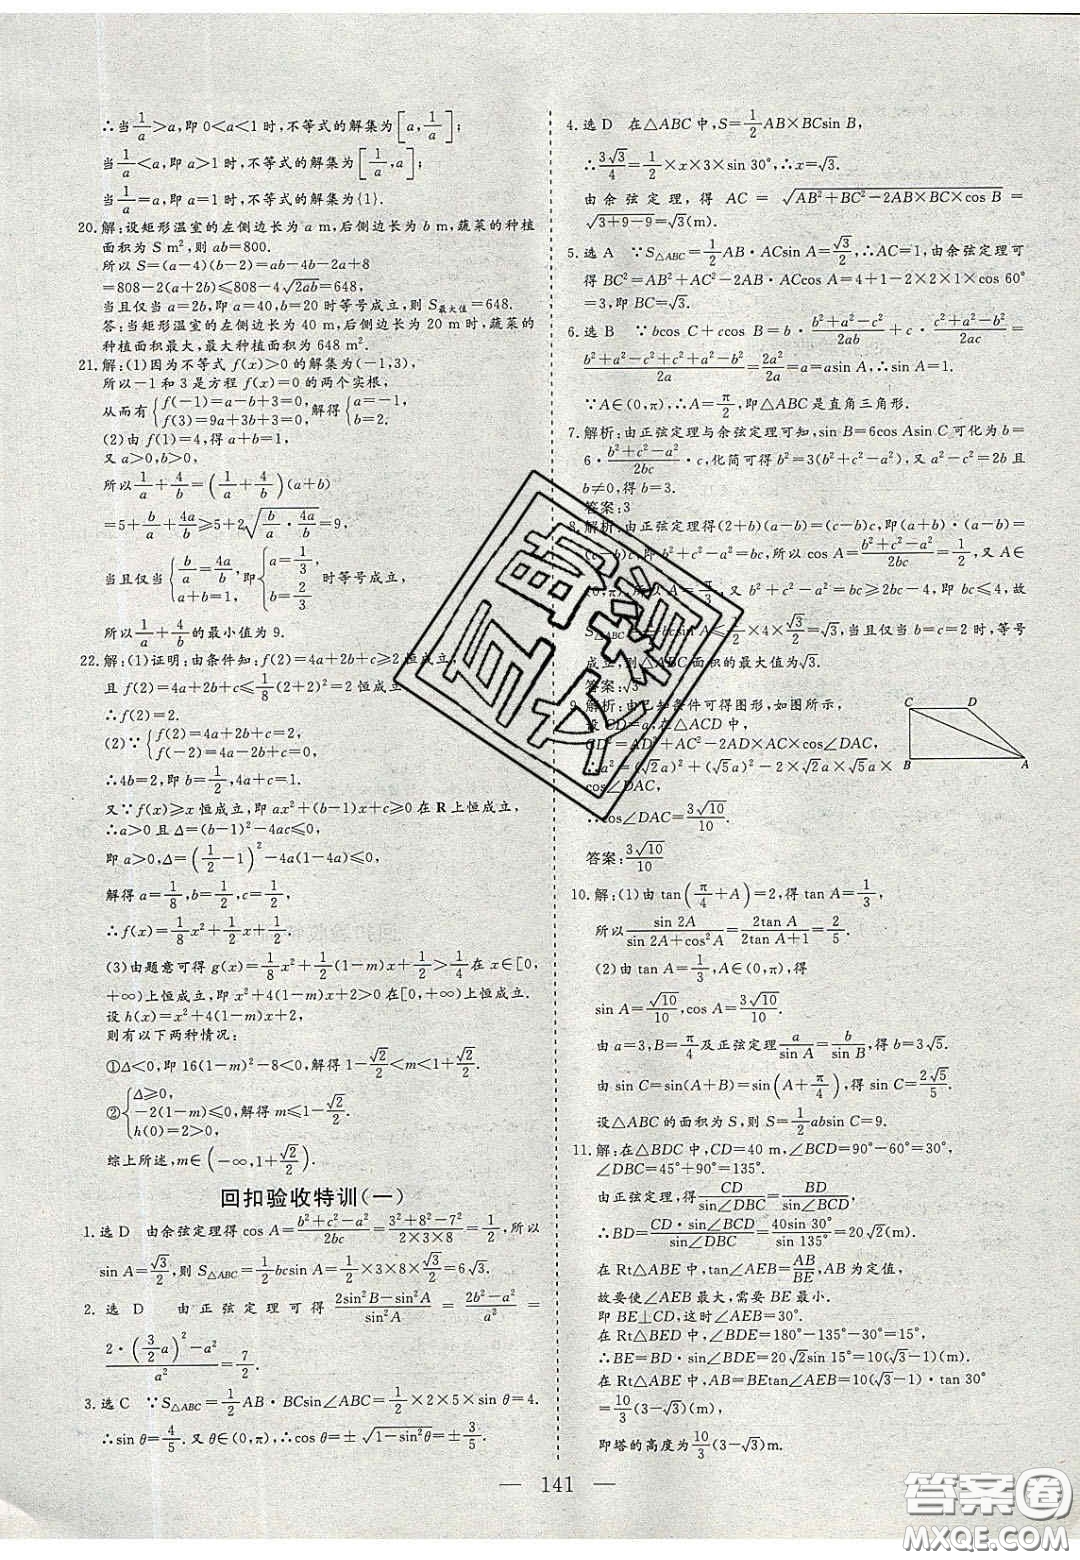 ∴当1/a>a,即0<a<1时,不等式的解集为[a,1/a];
当1/a<a,即a>1时,不等式的解集为[1/a,a];
当1/a=a,即a=1时,不等式的解集为{1}.
20.解:设矩形温室的左侧边长为a m,后侧边长为b m,蔬菜的种植
面积为S m²,则ab=800.
所以S=(a-4)(b-2)=ab-4b-2a+8
=808-2(a+2b)≤808-4√(2ab)=648,
当且仅当a=2b,即a=40,b=20时等号成立,则S最大值=648.
答:当矩形温室的左侧边长为40 m,后侧边长为20 m时,蔬菜的
种植面积最大,最大种植面积为648 m².
21.解:(1)因为不等式f(x)>0的解集为(-1,3),
所以-1和3是方程f(x)=0的两个实根,
从而有{f(-1)=a-b+3=0, f(3)=9a+3b+3=0, 解得{a=-1, b=2.
(2)由f(1)=4,得a+b=1,
又a>0,b>0,
所以1/a+4/b=(1/a+4/b)(a+b)
=5+b/a+4a/b≥5+2√(b/a·4a/b)=9,
当且仅当{b/a=4a/b, a+b=1, 即{a=1/3, b=2/3 时等号成立,
所以1/a+4/b的最小值为9.
22.解:(1)证明:由条件知:f(2)=4a+2b+c≥2恒成立,
且f(2)=4a+2b+c≤1/8(2+2)²=2恒成立
∴f(2)=2.
(2)∵{f(2)=4a+2b+c=2, f(-2)=4a-2b+c=0,
∴4b=2,即b=1/2,4a+c=1,
又∵f(x)≥x恒成立,即ax²+(b-1)x+c≥0在R上恒成立,
∴a>0且Δ=(b-1)²-4ac≤0,
即a>0,Δ=(1/2-1)²-4a(1-4a)≤0,
解得a=1/8,b=1/2,c=1/2,
∴f(x)=1/8x²+1/2x+1/2.
(3)由题意可得g(x)=1/8x²+1/2(1-m)x+1/2>1/4在x∈[0,
+∞)上恒成立,即x²+4(1-m)x+2>0在[0,+∞)上恒成立.
设h(x)=x²+4(1-m)x+2,
则有以下两种情况:
①Δ<0,即16(1-m)²-8<0,解得1-√2/2<m<1+√2/2.
②{Δ≥0, -2(1-m)≤0, h(0)=2>0, 解得m≤1-√2/2.
综上所述,m∈(-∞,1+√2/2).
回扣验收特训(一)
1.选D 由余弦定理得cos A=(b²+c²-a²)/2bc=(3²+8²-7²)/(2×3×8)=1/2,所以
sin A=√3/2,则S△ABC=1/2bcsin A=1/2×3×8×√3/2=6√3.
2.选D 由正弦定理可得(2sin²B-sin²A)/sin²A=(2b²-a²)/a²=
(2·(3/2a)²-a²)/a²=7/2.
3.选C ∵S△ABC=1/2AB·BCsin∠ABC=1/2×2×5×sin θ=4.
∴sin θ=4/5.又θ∈(0,π),∴cos θ=±√(1-sin²θ)=±3/5.
4.选D 在△ABC中,S=1/2AB×BCsin B,
∴3√3/4=1/2×x×3×sin 30°,∴x=√3.
由余弦定理,得AC=√(AB²+BC²-2AB×BC×cos B)=
√(3+9-9)=√3(m).
5.选A ∵S△ABC=1/2AB·ACsin A=√3/2,∴AC=1,由余弦定理可
得BC²=AB²+AC²-2AB·ACcos A=4+1-2×2×1×cos 60°
=3,即BC=√3.
6.选B ∵bcos C+ccos B=b·(b²+a²-c²)/2ab+c·(c²+a²-b²)/2ac=
(b²+a²-c²+c²+a²-b²)/2a=2a²/2a=a=asin A,∴sin A=1.
∵A∈(0,π),∴A=π/2,即△ABC是直角三角形.
7.解析:由正弦定理与余弦定理可知,sin B=6cos Asin C可化为b=
6·(b²+c²-a²)/2bc·c,化简可得b²=3(b²+c²-a²),又a²-c²=2b且
b≠0,得b=3.
答案:3
8.解析:由正弦定理得(2+b)(a-b)=(c-b)c,即(a+b)·(a-b)
=(c-b)c,即b²+c²-a²=bc,所以cos A=(b²+c²-a²)/2bc=1/2,又A∈
(0,π),所以A=π/3,又b²+c²-a²=bc≥2bc-4,即bc≤4,故
S△ABC=1/2bcsin A≤1/2×4×√3/2=√3,当且仅当b=c=2时,等号
成立,则△ABC面积的最大值为√3.
答案:√3
9.解析:由已知条件可得图形,如图所示,
设CD=a,在△ACD中,
CD²=AD²+AC²-2AD×AC×cos∠DAC,
∴a²=(√2a)²+(√5a)²-2×√2a×√5a×
cos∠DAC,
∴cos∠DAC=3√10/10.
答案:3√10/10
C D
B A
10.解:(1)由tan(π/4+A)=2,得tan A=1/3,
所以sin 2A/(sin 2A+cos²A)=2tan A/(2tan A+1)=2/5.
(2)由tan A=1/3,A∈(0,π),得
sin A=√10/10,cos A=3√10/10.
由a=3,B=π/4及正弦定理a/sin A=b/sin B,得b=3√5.
由sin C=sin(A+B)=sin(A+π/4),得sin C=2√5/5.
设△ABC的面积为S,则S=1/2absin C=9.
11.解:在△BDC中,CD=40 m,∠BCD=90°-60°=30°,
∠DBC=45°+90°=135°.
由正弦定理,得CD/sin∠DBC=BD/sin∠BCD,
∴BD=CD·sin∠BCD/sin∠DBC=40sin 30°/sin 135°=20√2(m).
在Rt△ABE中,tan∠AEB=AB/BE,AB为定值,
故要使∠AEB最大,需要BE最小.
即BE⊥CD,这时∠AEB=30°.
在Rt△BED中,∠BDE=180°-135°-30°=15°,
∴BE=BD·sin∠BDE=20√2sin 15°=10(√3-1)(m).
在Rt△ABE中,AB=BEtan∠AEB=10(√3-1)·tan 30°
=10/3(3-√3)(m),
即塔的高度为10/3(3-√3)m.
— 141 —
答案圈
MXQE.COM